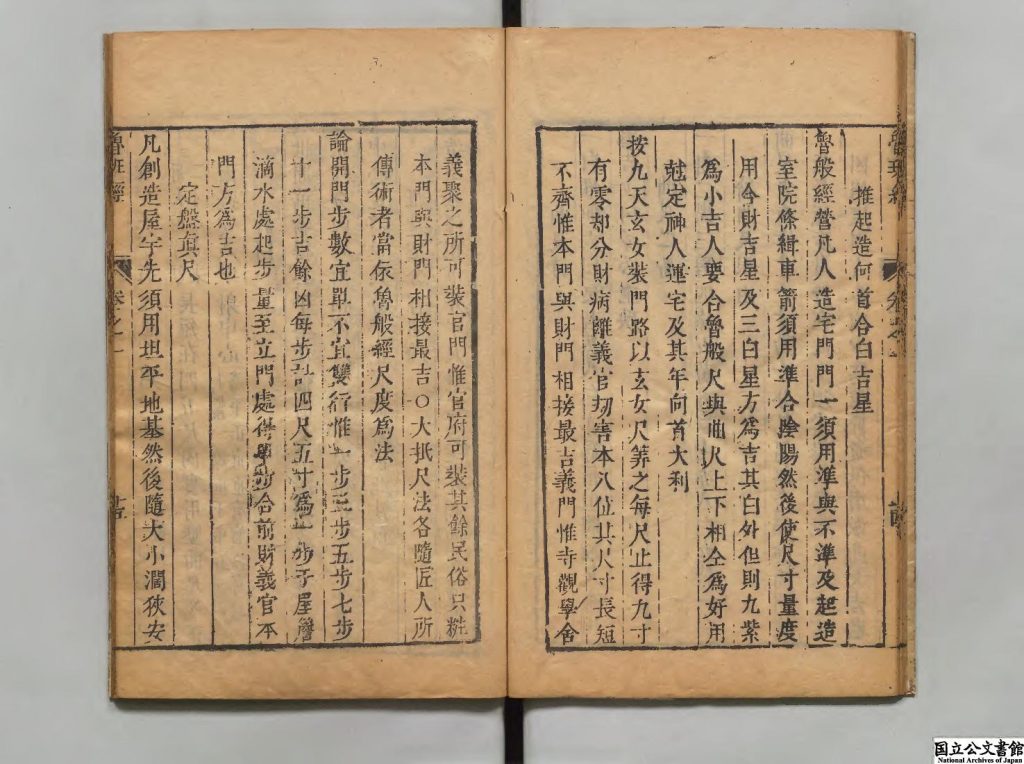 推起造何首合白吉星
魯般經營凡人造宅門門一須用準與不準及起造
室院條緝車箭須用準合陰陽然後使尺寸量度
用合財吉星及三白星方為吉其白外但則九紫
為小吉人要合魯般尺與曲尺上下相仝為好用
尅定神人運宅及其年向首大利
按九天玄女裝門路以玄女尺筭之每尺止得九寸
有零却分財病離義官刧害本八位其尺寸長短
不齊惟本門與財門相接最吉義門惟寺觀學舍
義聚之所可裝官門惟官府可裝其餘民俗只粧
本門與財門相接最吉○大抵尺法各隨匠人所
傳術者當依魯般經尺度為法
論開門步數宜單不宜雙行惟一步三步五步七步
十一步吉餘凶每步計四尺五寸為一步于屋簷
滴水處起步量至立門處得單步合前財義官本
門方為吉也
定盤真尺
凡創造屋宇先須用坦平地基然後隨大小濶狹安
魯班經
卷之一
十五
国立公文書館
National Archives of Japan